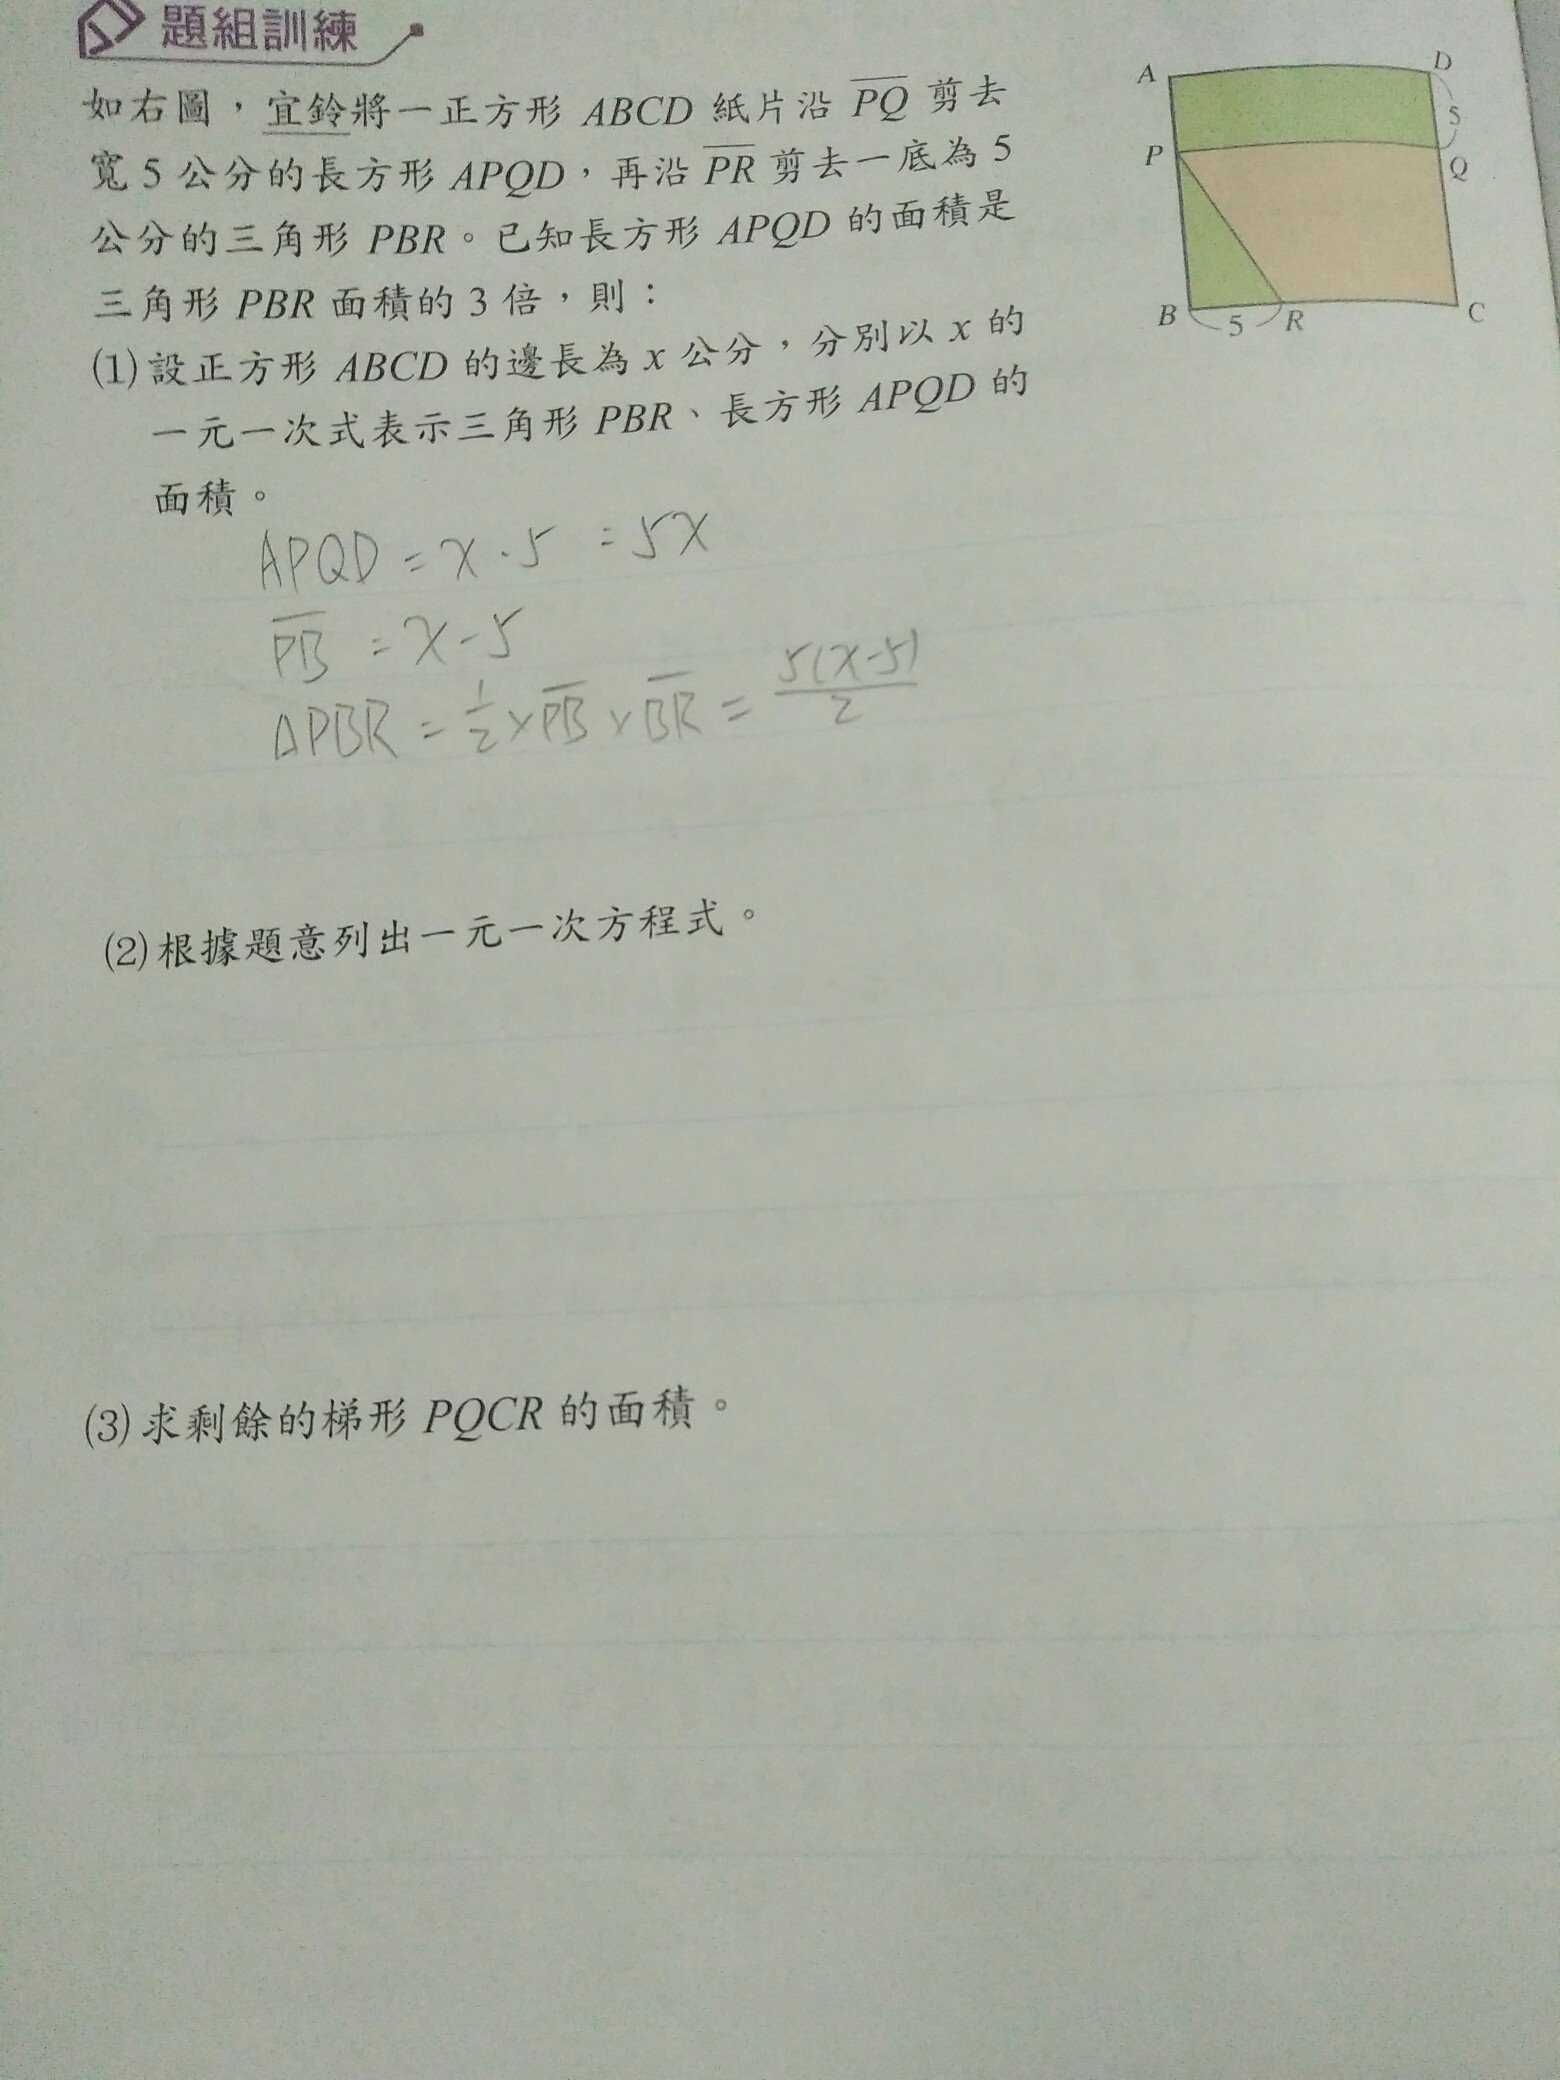 題組訓練
如右圖，宜鈴將一正方形 ABCD 紙片沿 PQ 剪去
寬 5 公分的長方形 APQD，再沿 PR 剪去一底為 5
公分的三角形 PBR。已知長方形 APQD 的面積是
三角形 PBR 面積的 3 倍，則：
A
D
5
P
Q
B
5
R
C
(1) 設正方形 ABCD 的邊長為 x 公分，分別以 x 的
一元一次式表示三角形 PBR、長方形 APQD 的
面積。
APQD = x · 5 = 5x
PB = x - 5
△PBR = 1/2 × PB × BR = 5(x-5)/2
(2) 根據題意列出一元一次方程式。
(3) 求剩餘的梯形 PQCR 的面積。